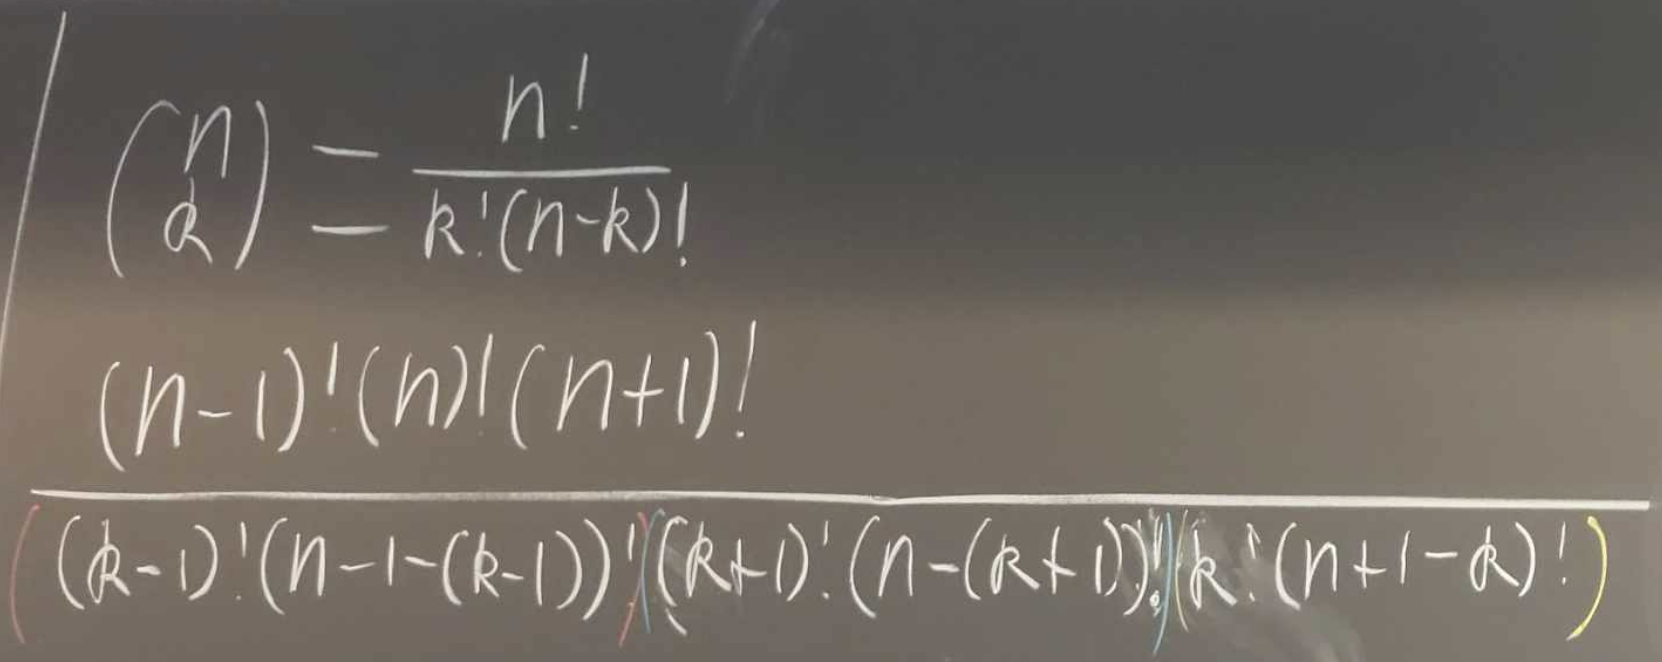 (n k) = n! / k!(n-k)!
(n-1)!(n)!(n+1)!
((k-1)!(n-1-(k-1))!)((k+1)!(n-(k+1))!)(k!(n+1-k)!)